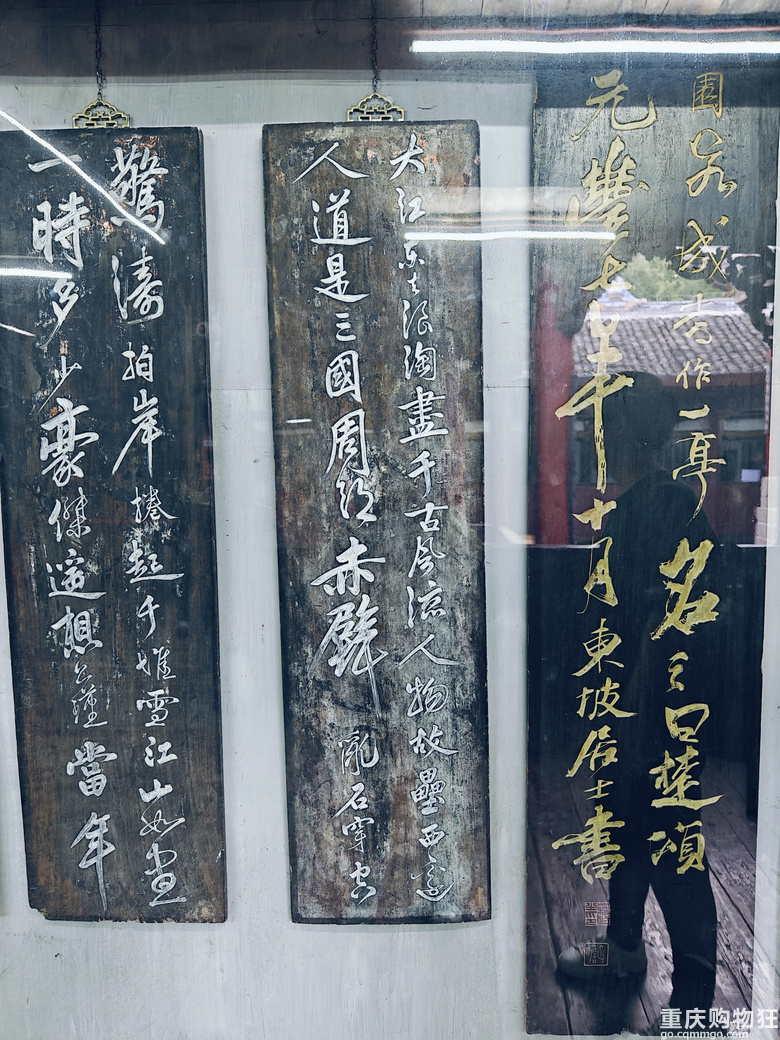 園若成當作一亭名之曰楚頌
元豐七年十月東坡居士書
大江東去浪淘盡千古風流人物故壘西邊
人道是三國周郎赤壁亂石穿空
驚濤拍岸捲起千堆雪江山如畫
一時多少豪傑遙想公瑾當年
重庆购物狂
go.cqmmgo.com